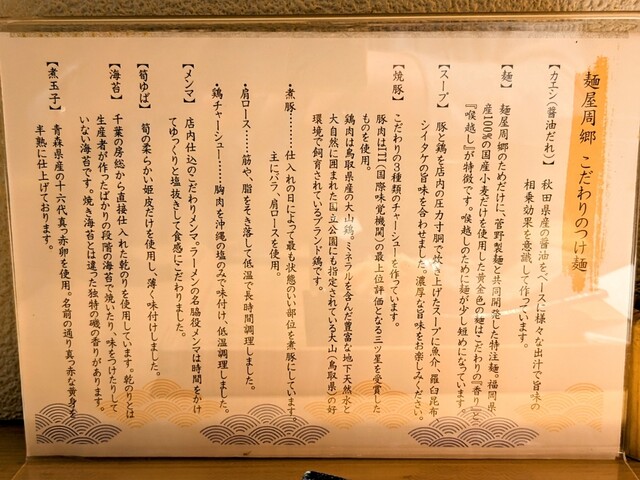 麺屋周郷 こだわりのつけ麺
【カエシ(醤油だれ)】 秋田県産の醤油をベースに様々な出汁で旨味の
相乗効果を意識して作っています。
【麺】 麺屋周郷のためだけに、菅野製麺と共同開発した特注麺。福岡県
産100%の国産小麦だけを使用した黄金色の麺はこだわりの『香り』と
『喉越し』が特徴です。喉越しのために麺が少し短めになっています。
【スープ】 豚と鶏を店内の圧力寸胴で炊き上げたスープに魚介、羅臼昆布
シイタケの旨味を合わせました。濃厚な旨味をお楽しみください。
【焼豚】 こだわりの3種類のチャーシューを作っています。
豚肉はITI(国際味覚機関)の最上位評価となる三ツ星を受賞した
ものを使用。
鶏肉は鳥取県産の大山鶏。ミネラルを含んだ豊富な地下天然水と
大自然に囲まれた国立公園にも指定されている大山(鳥取県)の好
環境で飼育されているブランド鶏です。
・煮豚………仕入れの日によって最も状態のいい部位を煮豚にしています。
主にバラ、肩ロースを使用。
・肩ロース……筋や、脂をそぎ落して低温で長時間調理しました。
・鶏チャーシュー……胸肉を沖縄の塩のみで味付け、低温調理しました。
【メンマ】 店内仕込のこだわりメンマ。ラーメンの名脇役メンマは時間をかけ
てゆっくりと塩抜きして食感にこだわりました。
【筍ゆば】 筍の柔らかい姫皮だけを使用し、薄く味付けしました。
【海苔】 千葉の房総から直接仕入れた乾のりを使用しています。乾のりとは
生産者が作ったばかりの段階の海苔で焼いたり、味をつけたりして
いない海苔です。焼き海苔とは違った独特の磯の香りがあります。
【煮玉子】 青森県産の十六代真っ赤卵を使用。名前の通り真っ赤な黄身を
半熟に仕上げております。